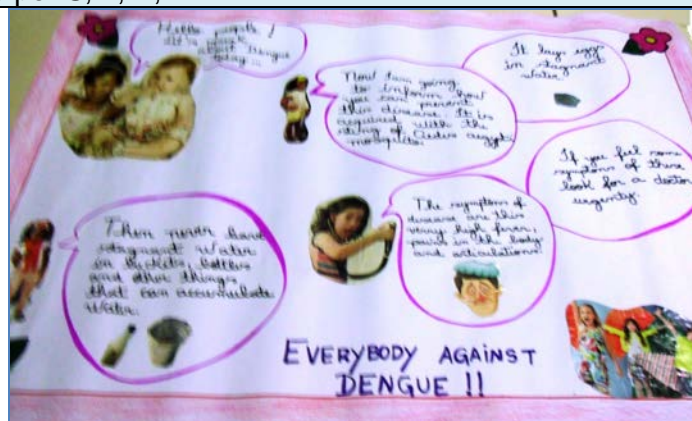 Hello people!
Let's speak
about Dengue
today...
Now I am going
to inform how
you can prevent
this disease. It is
acquired with the
sting of Aedes aegypti
mosquito.
It lays eggs
in stagnant
water.
If you feel some
symptoms of these
look for a doctor
urgenty.
Then never have
stagnant water
in buckets, bottles
and other things
that can accumulate
water.
The symptoms of
disease are this
very high fever,
pains in the body
and articulations.
EVERYBODY AGAINST
DENGUE !!